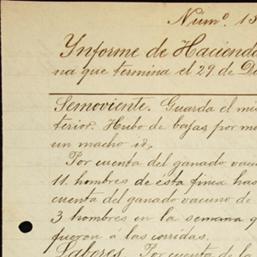 Num.º 13
Ynforme de Hacienda
na que termina el 29 de Di
Semoviente. Guarda el mis
terior. Hubo de bajas por mu
un macho id.
Por cuenta del ganado vacu
11 hombres de ésta finca has
cuenta del ganado vacuno de
3 hombres en la semana q
fueron á las corridas.
Labores. Por cuenta de la